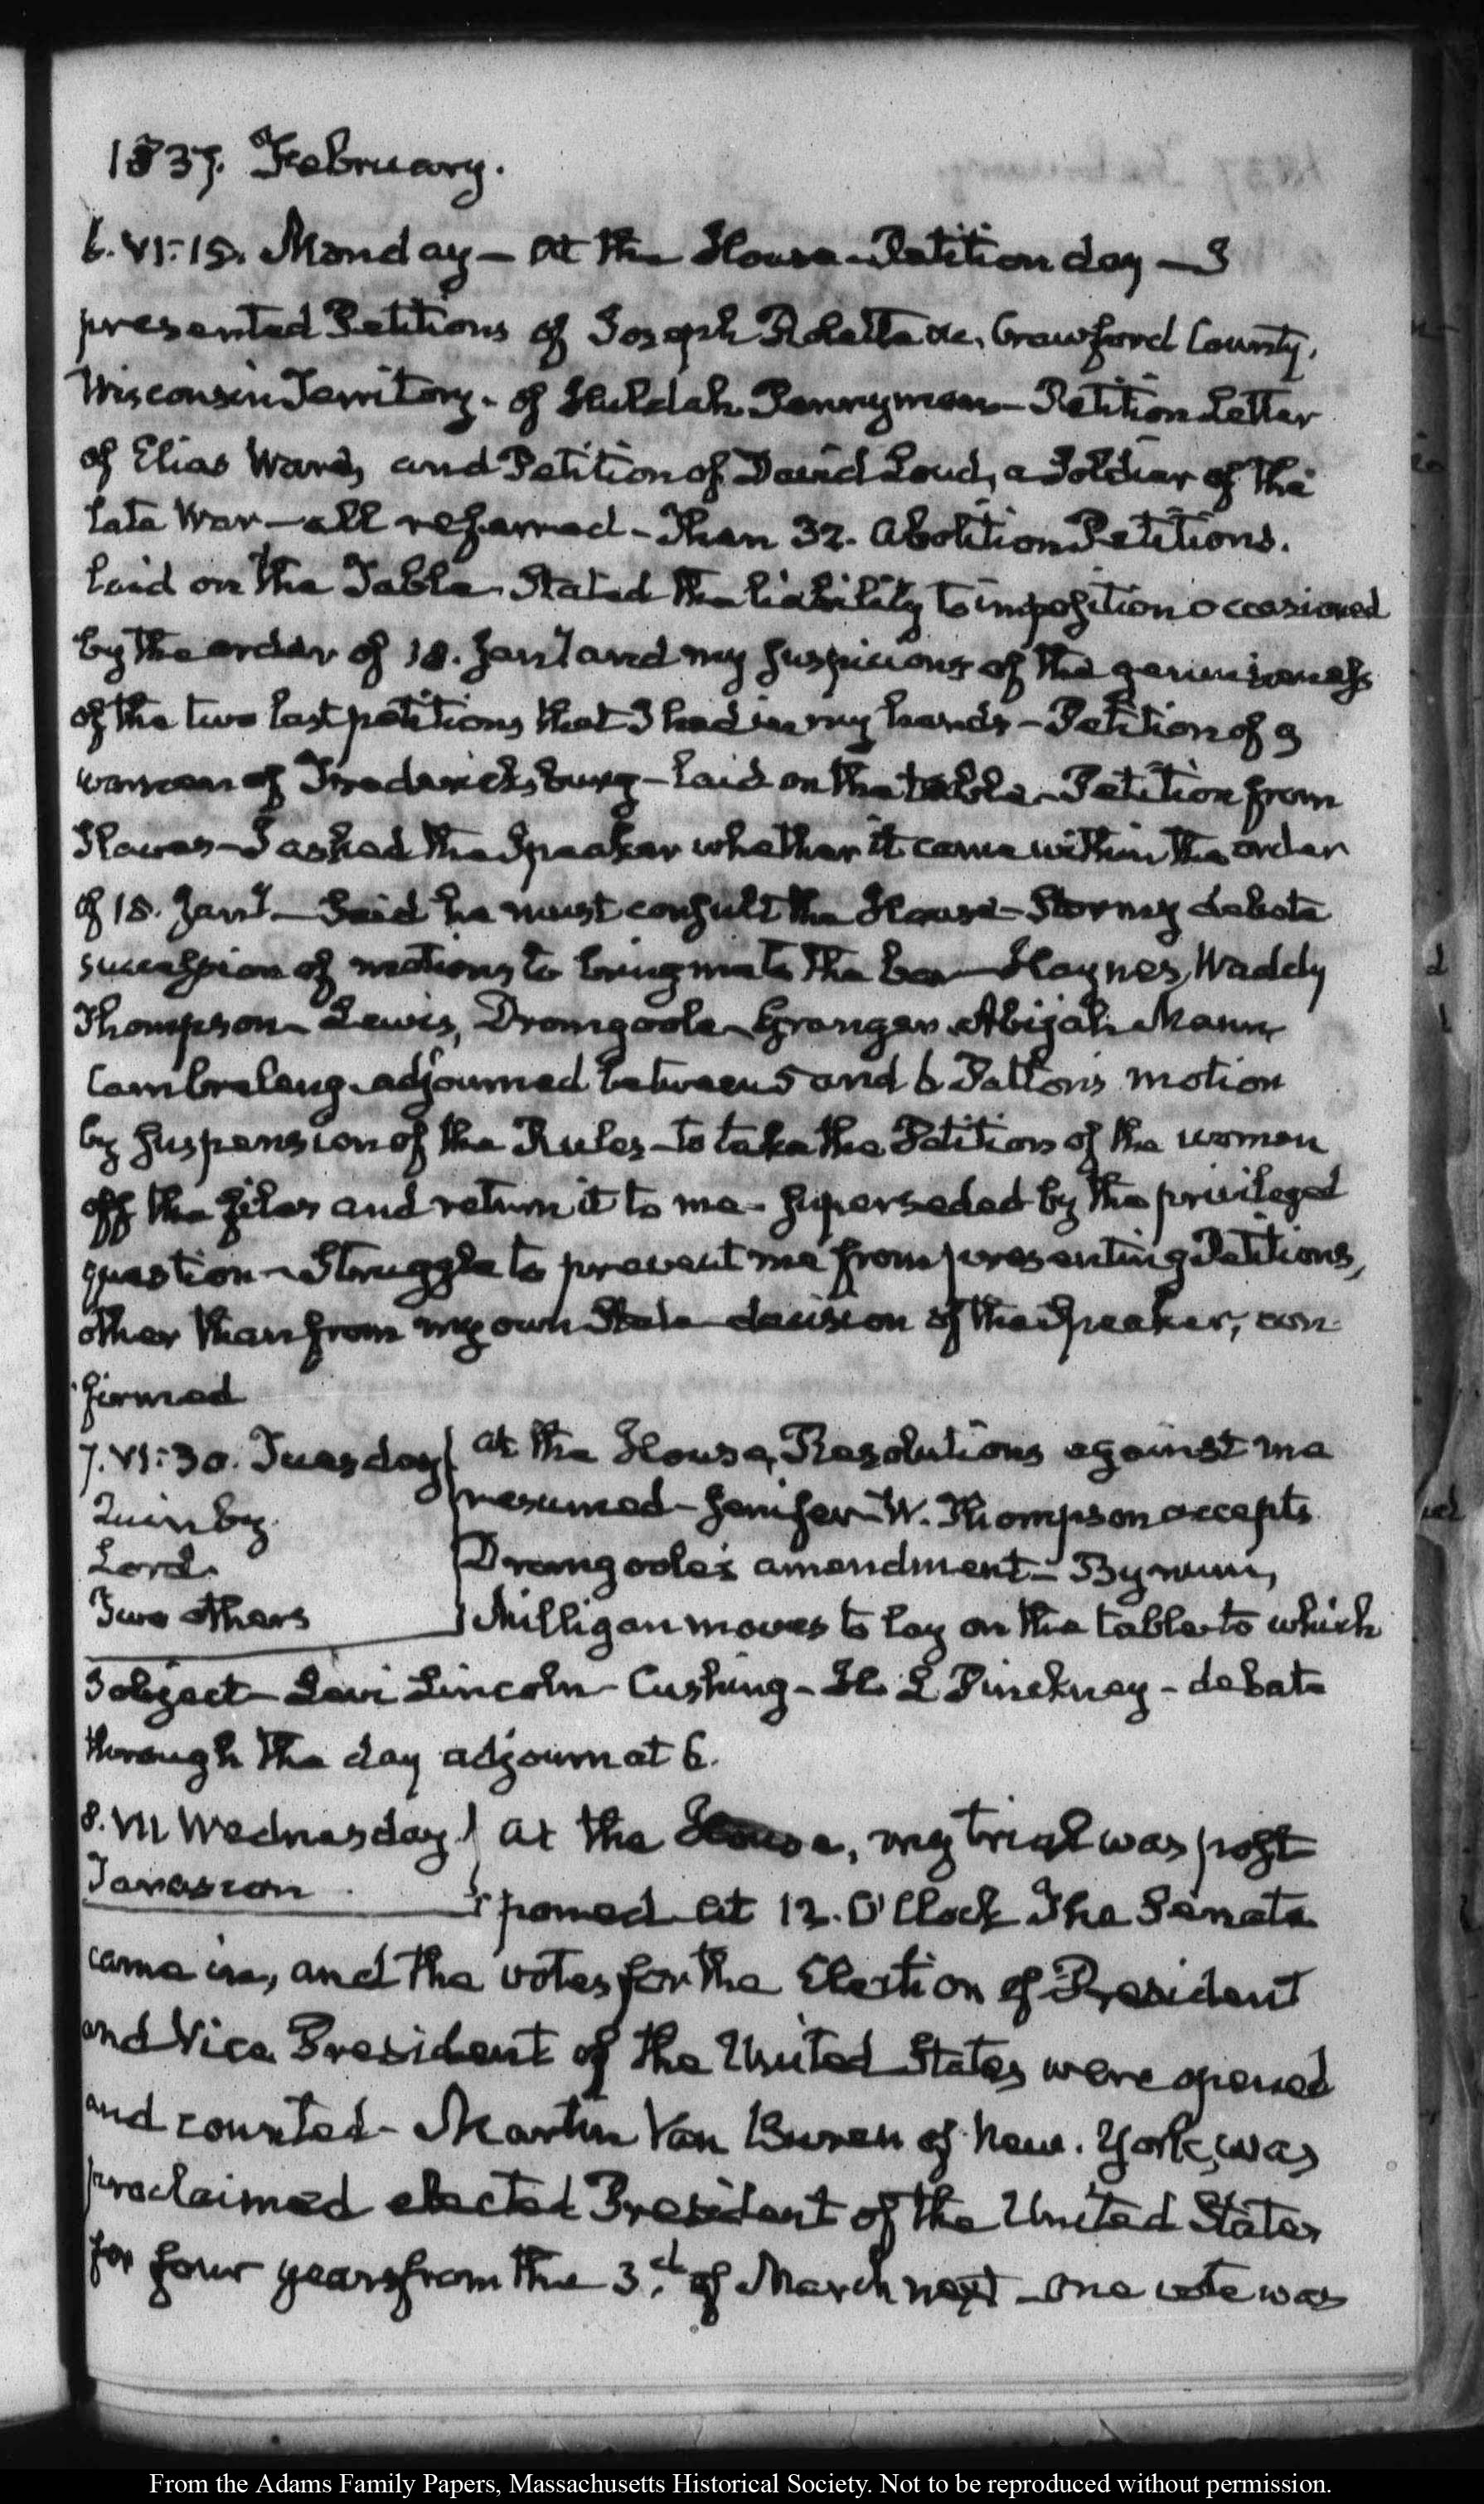 1837. February.
6. VI:15. Monday – At the House – Petition day – I
presented Petitions of Joseph Rolette &c, Crawford County,
Wisconsin Territory. of Huldah Pennyman – Petition Letter
of Elias Ward, and Petition of David Loud, a Soldier of the
late War – all referred – Then 32. Abolition Petitions.
laid on the Table. Stated the liability to imposition occasioned
by the order of 18. Jany. and my suspicions of the genuineness
of the two last petitions that I had in my hands – Petition of 9
women of Fredericksburg – laid on the table – Petition from
Slaves – I asked the Speaker whether it came within the order
of 18. Jany. – Said he must consult the House – Stormy debate
succession of motions to bring me to the bar – Haynes, Waddy
Thompson – Lewis, Dromgoole – Granger, Abijah Mann,
Cambreleng – adjourned between 5 and 6 Patton's motion
by suspension of the Rules – to take the Petition of the women
off the files and return it to me – superseded by the privileged
question – Struggle to prevent me from presenting Petitions,
other than from my own State – decision of the Speaker, con
firmed
7. VI:30. Tuesday
Quinby.
Lord.
Two others
At the House, Resolutions against me
resumed – Jenifer – W. Thompson accepts
Dromgoole's amendment – Bynum,
Milligan moves to lay on the table – to which
I object – Levi Lincoln – Cushing – H. L Pinckney – debate
through the day adjourn at 6.
8. VII Wednesday
At the House, my trial was post
poned – At 12. O'Clock The Senate
came in, and the votes for the Election of President
and Vice President of the United States were opened
and counted – Martin Van Buren of New. York, was
proclaimed elected President of the United States
for four years from the 3.d of March next – one vote was
From the Adams Family Papers, Massachusetts Historical Society. Not to be reproduced without permission.